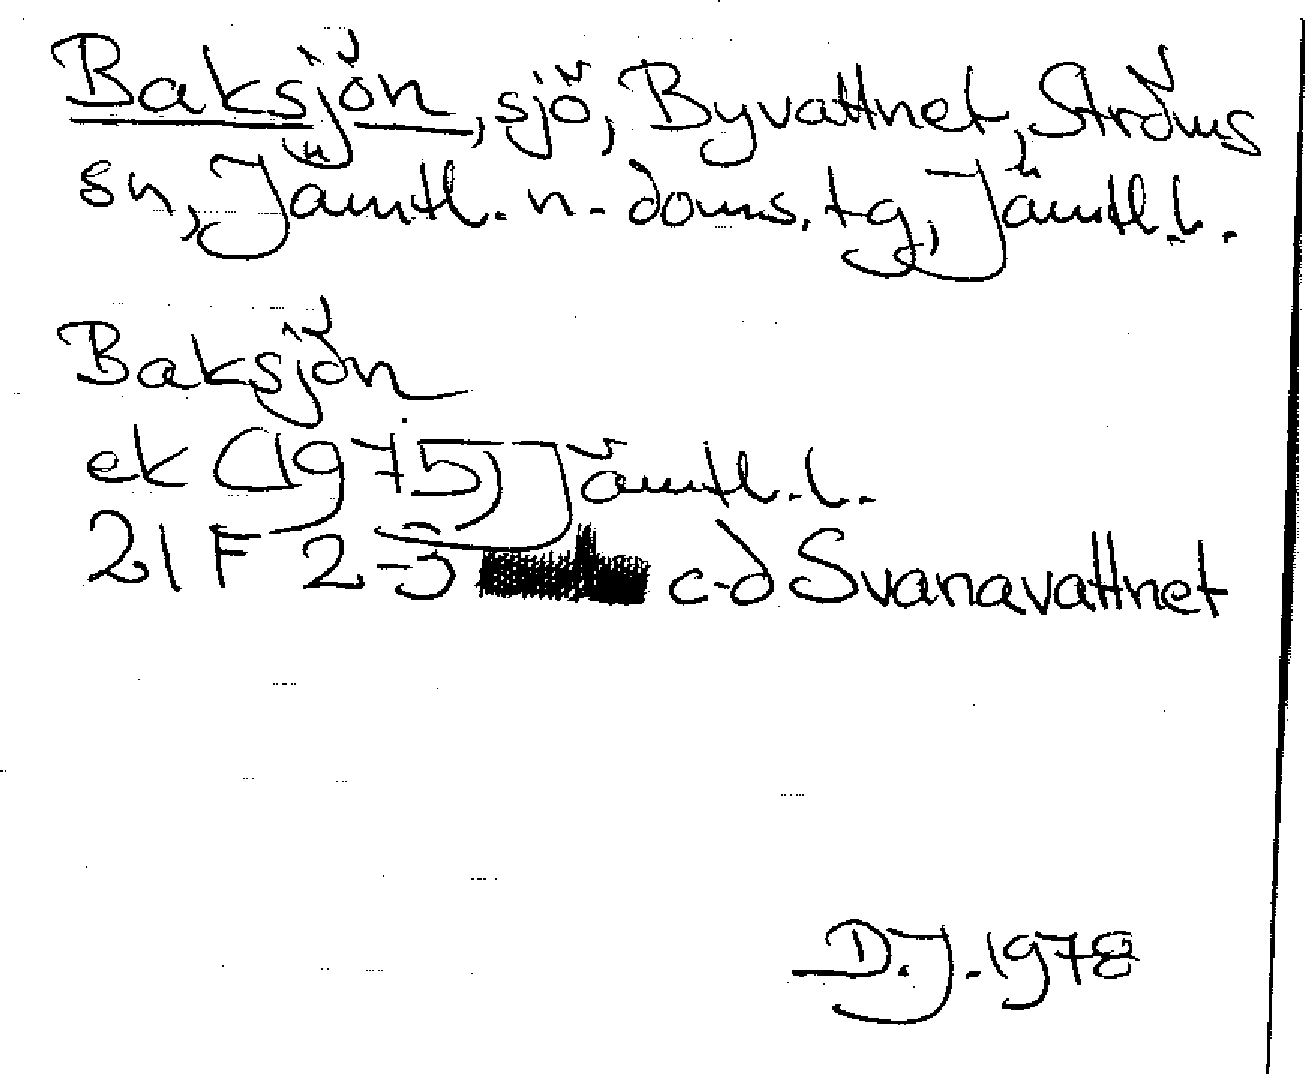 Baksjön, sjö, Byvattnet, Ströms
sn, Jämtl. n. doms. tg, Jämtl. l.
Baksjön
ek (1975) Jämtl. l.
21 F 2-3 c-d Svanavattnet
D.J. 1978